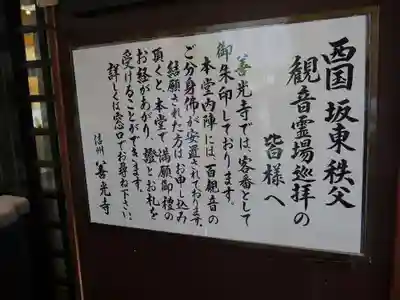 西国坂東秩父
観音霊場巡拝の
皆様へ
善光寺では、客番として
御朱印しております。
本堂内陣には、百観音の
ご分身佛が安置されております。
結願された方はお申し込み
頂くと、本堂で満願御礼の
お経があがり、證とお札を
受けることができます。
詳しくは窓口でお尋ね下さい。
信州 善光寺